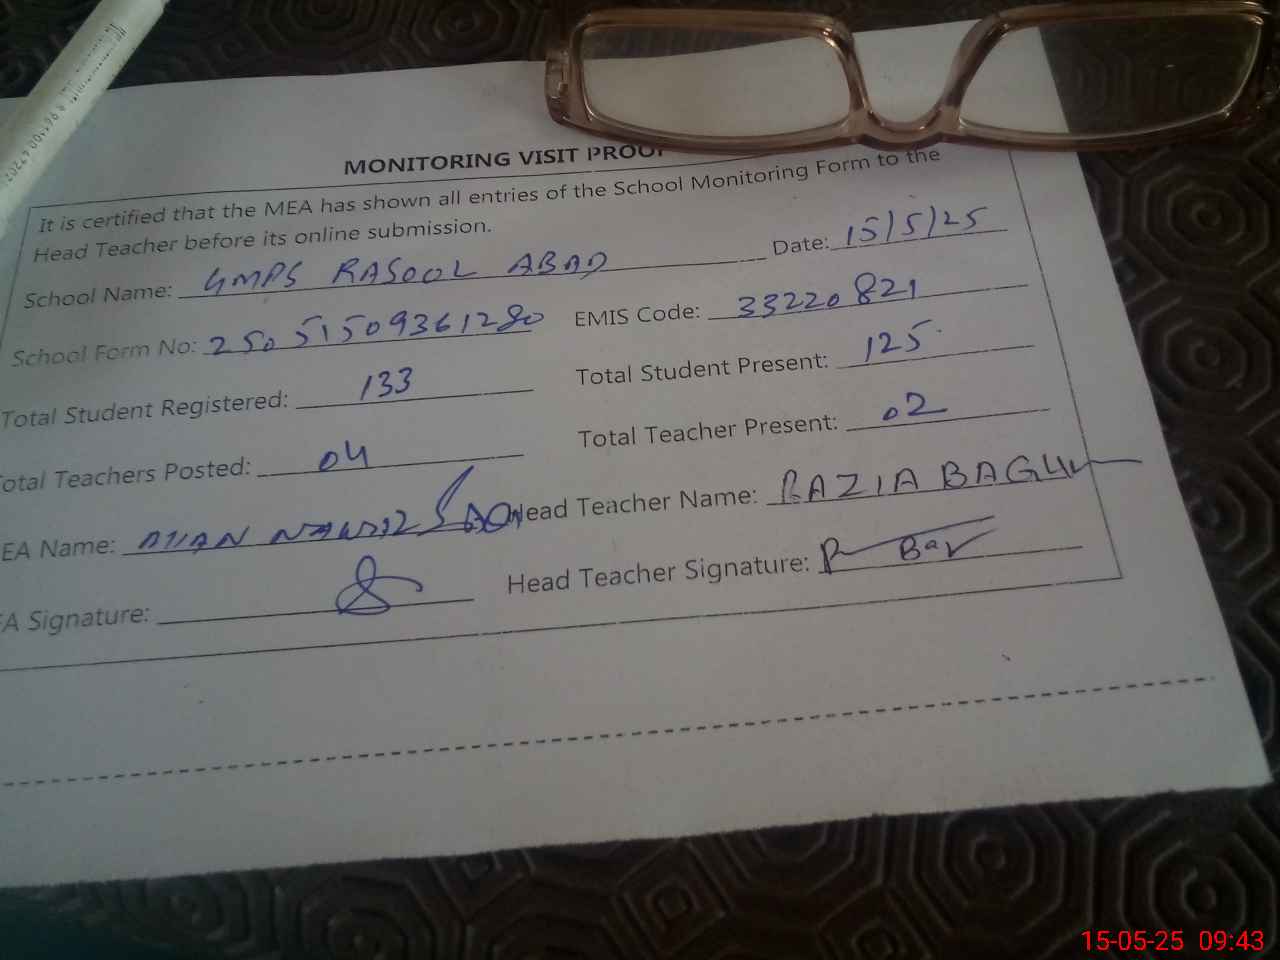 MONITORING VISIT PROOF
It is certified that the MEA has shown all entries of the School Monitoring Form to the
Head Teacher before its online submission.
School Name: GMPS RASOOL ABAD Date: 15/5/25
School Form No: 25051509361280 EMIS Code: 33220821
Total Student Registered: 133 Total Student Present: 125
otal Teachers Posted: 04 Total Teacher Present: 02
EA Name: Head Teacher Name: RAZIA BAGUM
EA Signature: Head Teacher Signature:
15-05-25 09:43